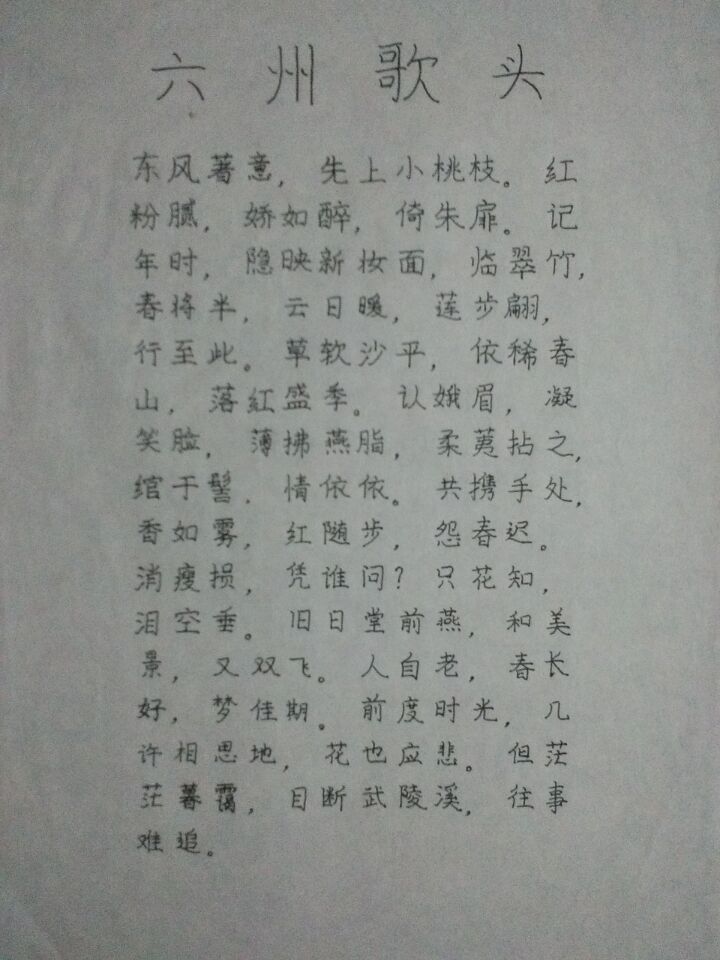 六州歌头
东风著意，先上小桃枝。红
粉腻，娇如醉，倚朱扉。记
年时，隐映新妆面，临翠竹，
春将半，云日暖，莲步翩，
行至此。草软沙平，依稀春
山，落红盛季。认娥眉，凝
笑脸，薄拂燕脂，柔荑拈之，
绾于髻，情依依。共携手处，
香如雾，红随步，怨春迟。
消瘦损，凭谁问？只花知，
泪空垂。旧日堂前燕，和美
景，又双飞。人自老，春长
好，梦佳期。前度时光，几
许相思地，花也应悲。但茫
茫暮霭，目断武陵溪，往事
难追。